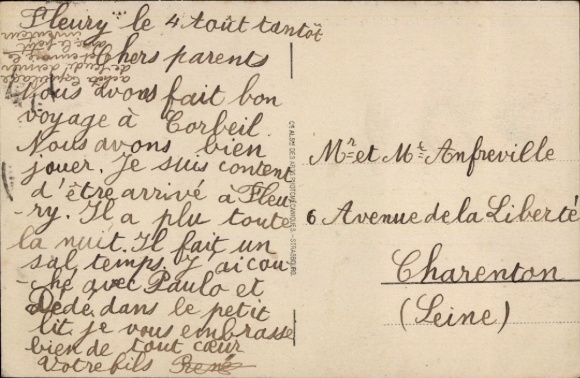 Fleury le 4 Août tantôt
Chers parents
Nous avons fait bon
voyage à Corbeil.
Nous avons bien
jouer. Je suis content
d'être arrivé à Fleu
-ry. Il a plu toute
la nuit. Il fait un
sal temps. J'ai cou-
-ché avec Paulo et
Dédé dans le petit
lit je vous embrasse
bien de tout cœur
Votre fils René
Mr et Me Anfreville
6 Avenue de la Liberté
Charenton
(Seine)